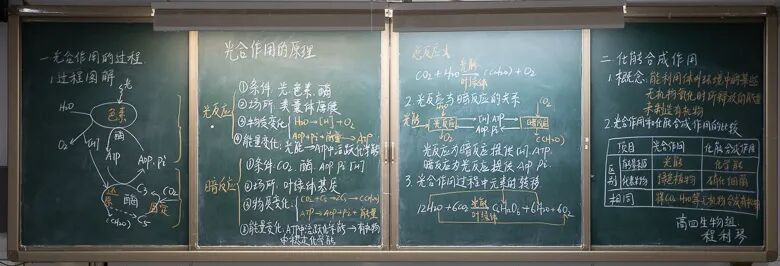 光合作用的原理
一.光合作用的过程
1.过程图解
光
H₂O
色素
O₂
[H]
酶
ATP
ADP.Pi
还原
酶
C₃
CO₂
固定
(CH₂O)
C₅
光反应
①条件:光.色素.酶
②场所:类囊体薄膜
③物质变化
H₂O→[H]+O₂
ADP+Pi+能量→ATP
④能量变化:光能→ATP中活跃化学能
暗反应
①条件:CO₂.酶.ADP.Pi [H]
②场所:叶绿体基质
③物质变化
CO₂+C₅→2C₃→(CH₂O)
ATP→ADP+Pi+能量
④能量变化:ATP中活跃化学能→有机物
中稳定化学能
总反应式
CO₂+H₂O 光能 叶绿体 (CH₂O)+O₂
2.光反应与暗反应的关系
H₂O
CO₂
光能
光反应
[H] ATP
ADP.Pi
暗反应
O₂
(CH₂O)
光反应为暗反应提供[H].ATP.
暗反应为光反应提供ADP.Pi.
3.光合作用过程中元素的转移
12H₂O+6CO₂ 光能 叶绿体 C₆H₁₂O₆+6H₂O+6O₂
二.化能合成作用
1.概念:能利用体外环境中的某些
无机物氧化时所释放的能量
来制造有机物
2.光合作用和化能合成作用的比较
项目 光合作用 化能合成作用
区别 能量来源 光能 化学能
代表生物 绿色植物 硝化细菌
相同 将CO₂.H₂O等无机物合成有机物
高四生物组
程利琴